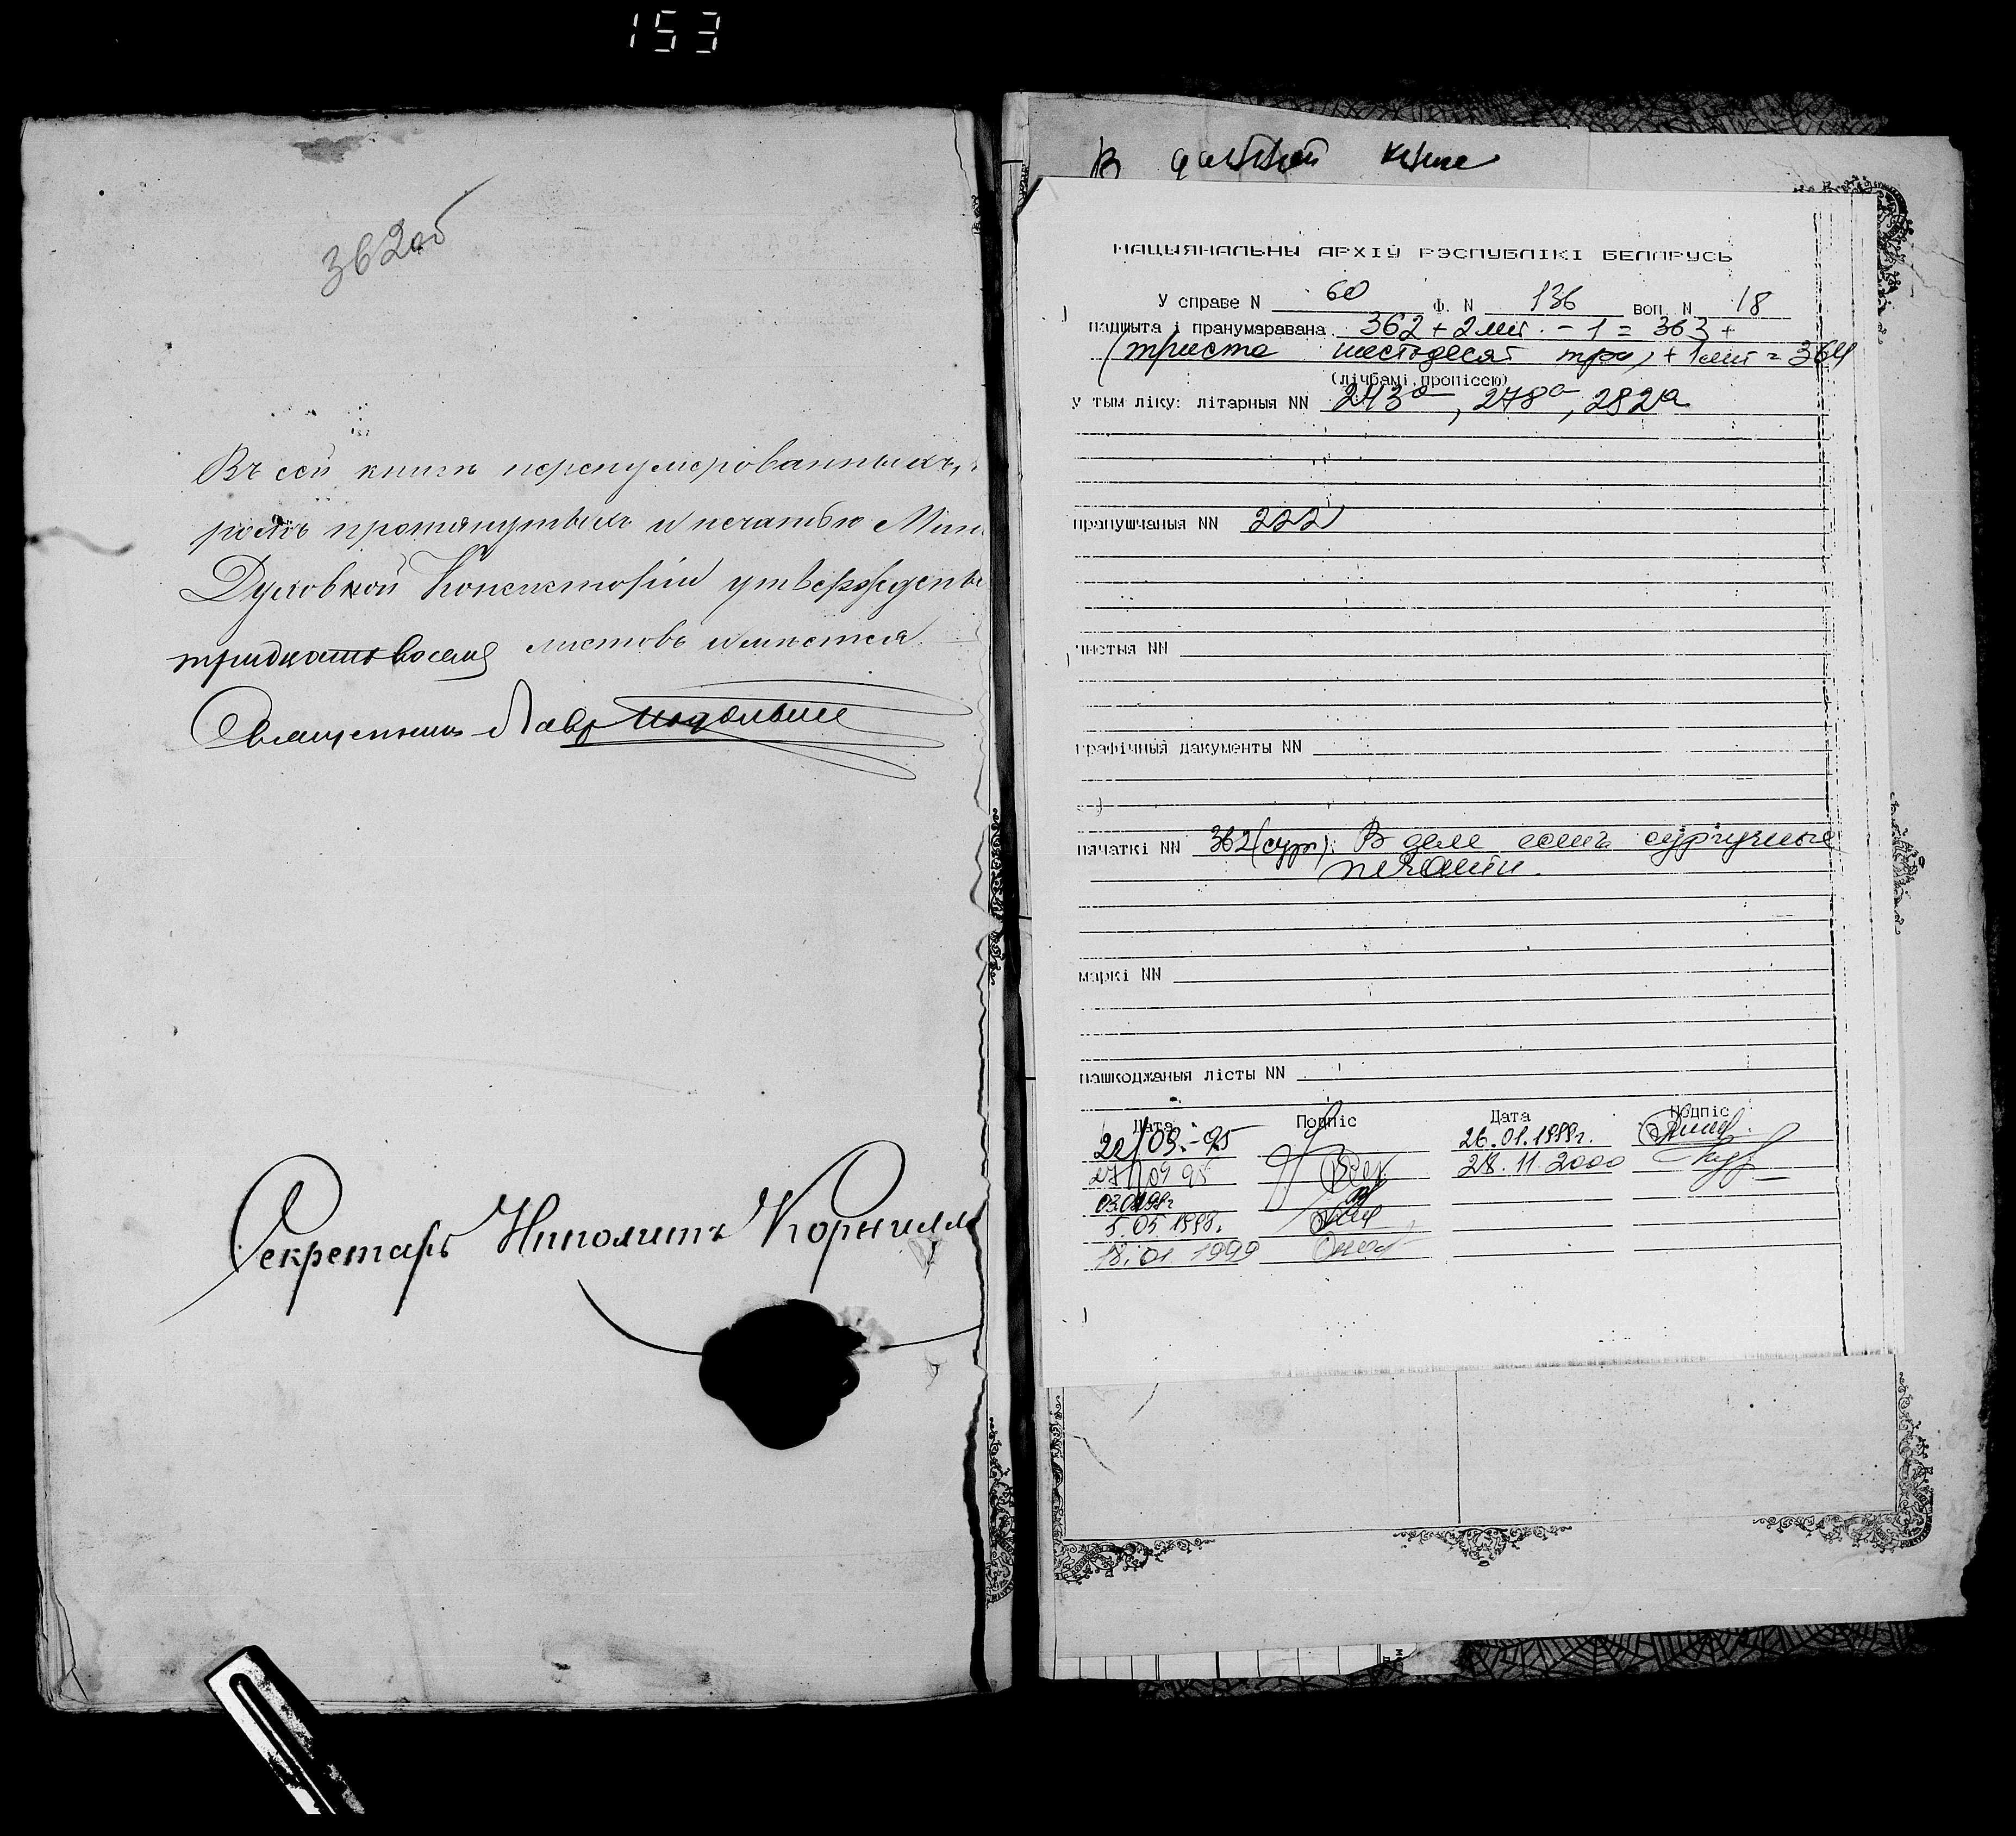 153
362об
Въ сей книгѣ перенумерованныхъ,
протянутыхъ и печатью Мин
Духовной Консисторіи утвержденны
тридцать восемь листовъ имѣется.
Священникъ Лавр
Секретарь Ипполитъ Корнилл
В книге
НАЦЫЯНАЛЬНЫ АРХІЎ РЭСПУБЛІКІ БЕЛАРУСЬ
У справе N 60 Ф. N 136 воп. N 18
падшыта і пранумаравана 362 + 2лит. - 1 = 363 +
(триста шестьдесят три) + 1лит = 364
(лічбамі, пропіссю)
у тым ліку: літарныя NN 243а, 278а, 282а
прапушчаныя NN 222
чыстыя NN
графічныя дакументы NN
пячаткі NN 362 (сург). В деле есть сургучные
печати.
маркі NN
пашкоджаныя лісты NN
Дата Подпіс Дата Подпіс
22/03.-95 26.01.1999г.
27/09 95 28.11.2000
5.05.1998.
18.01 1999